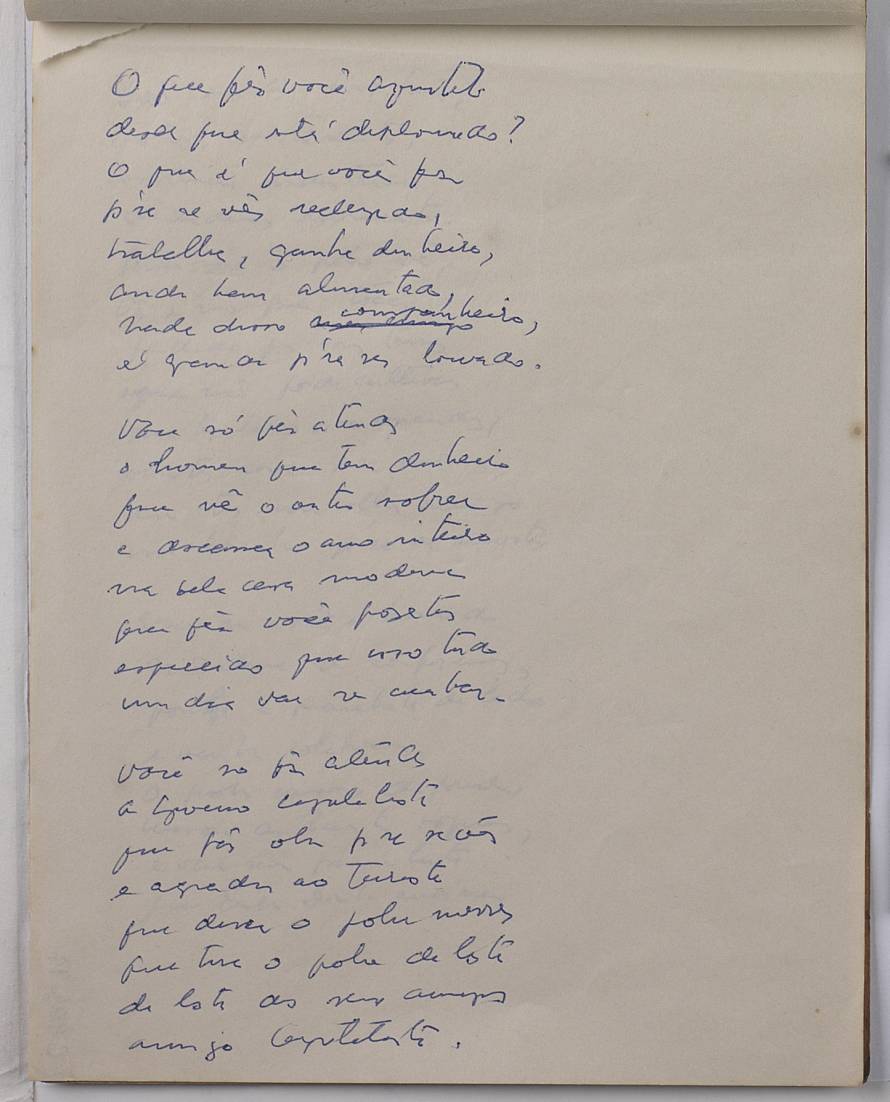 O que fês você arquiteto
desde que está diplomado?
O que é que você fês
p'ra se vês redempdo,
trabalha, ganha dinheiro,
anda bem alimentado,
nada disso companheiro,
é grande p'ra ser louvado.
Você só fês atender
o homem que tem dinheiro
que vê o outro sofrer
e descansa o ano inteiro
na bela casa moderna
que fês você
esquecido que isso tudo
um dia vai se acabar.
Você só fês atender
a Governo capitalista
que fás obra p'ra
e agradar ao turista
que deixa o pobre
que tira o pobre da lista
da lista dos seus amigos
amigo capitalista.